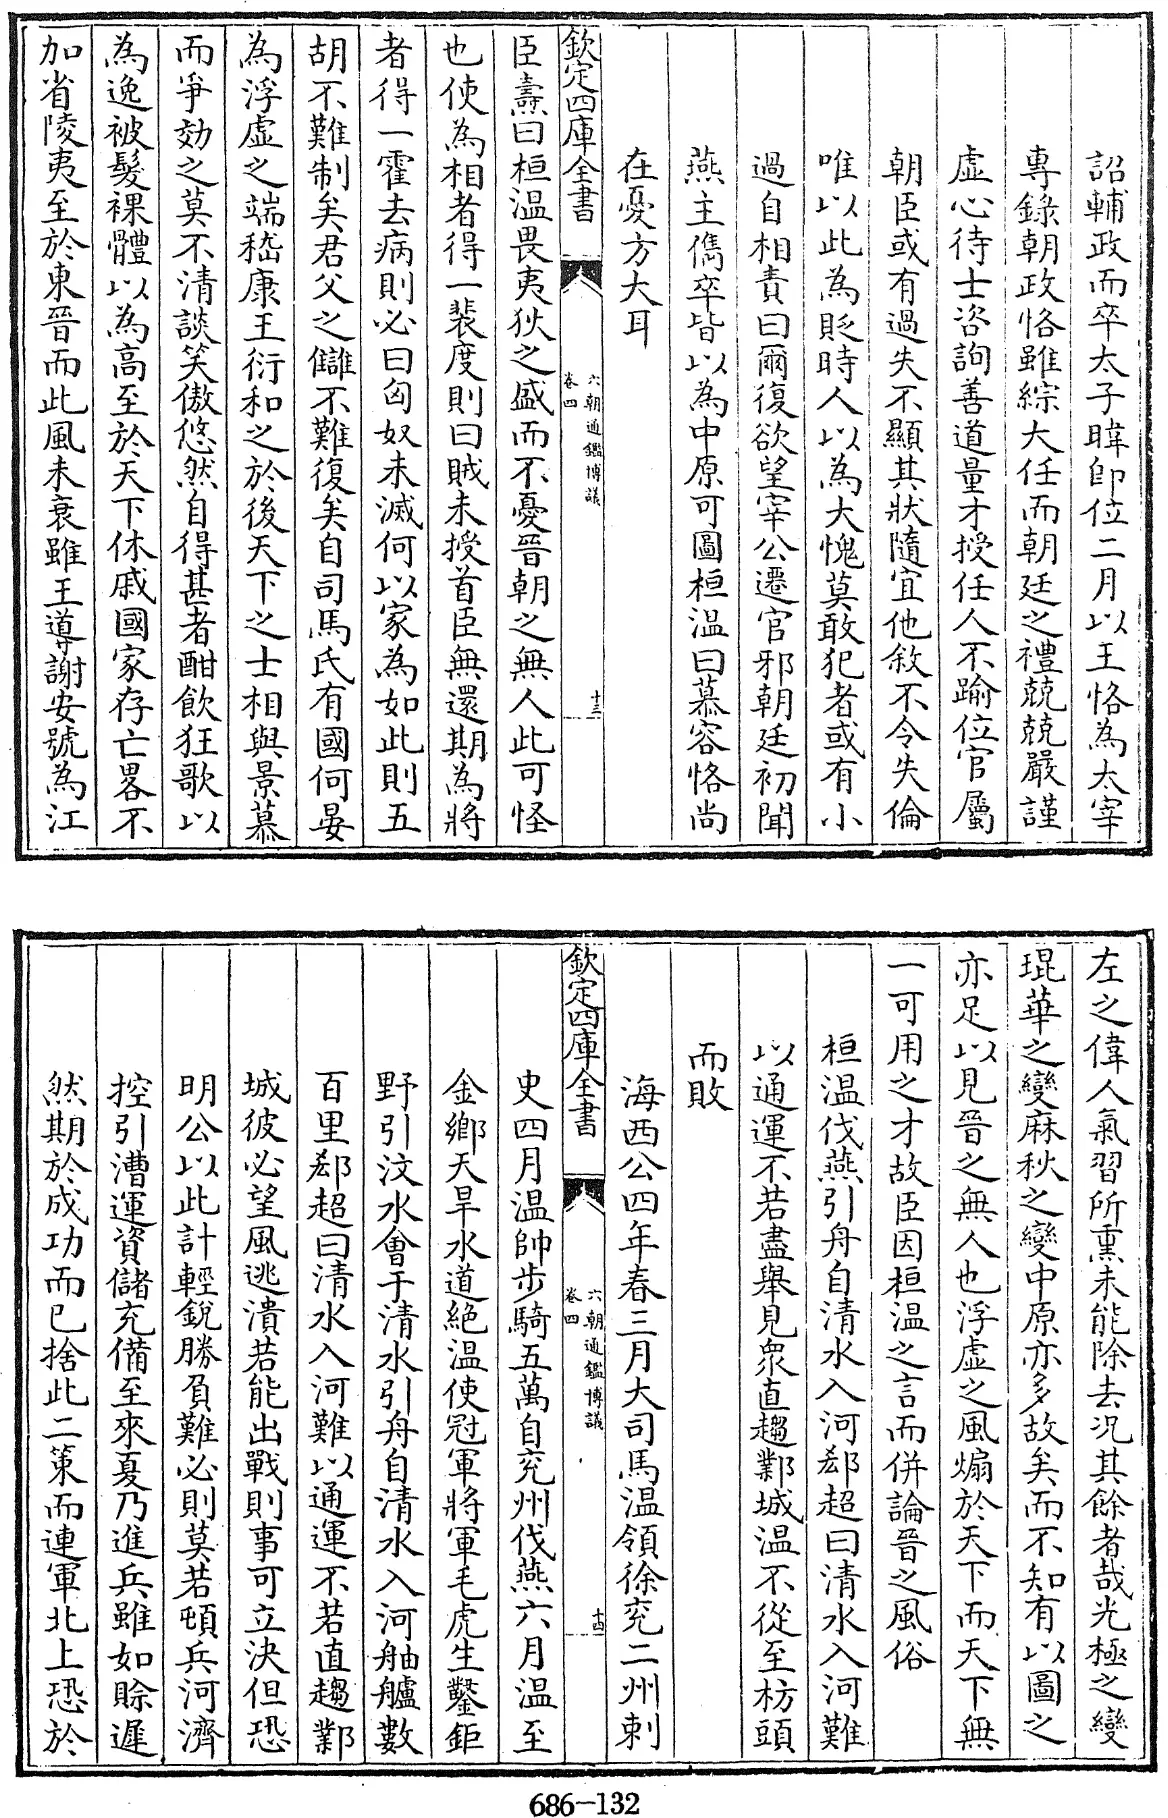 詔輔政而卒太子暐即位二月以王恪為太宰
專錄朝政恪雖綜大任而朝廷之禮兢兢嚴謹
虛心待士咨詢善道量才授任人不踰位官屬
朝臣或有過失不顯其狀隨宜他敘不令失倫
唯以此為貶時人以為大愧莫敢犯者或有小
過自相責曰爾復欲望宰公遷官邪朝廷初聞
燕主儁卒皆以為中原可圖桓溫曰慕容恪尚
在憂方大耳
欽定四庫全書
六朝通鑑博議
卷四
十三
臣燾曰桓溫畏夷狄之盛而不憂晉朝之無人此可怪
也使為相者得一裴度則曰賊未授首臣無還期為將
者得一霍去病則必曰匈奴未滅何以家為如此則五
胡不難制矣君父之讎不難復矣自司馬氏有國何晏
為浮虛之端嵇康王衍和之於後天下之士相與景慕
而爭効之莫不清談笑傲悠然自得甚者酣飲狂歌以
為逸被髮裸體以為高至於天下休戚國家存亡畧不
加省陵夷至於東晉而此風未衰雖王導謝安號為江
左之偉人氣習所熏未能除去況其餘者哉光極之變
琨華之變麻秋之變中原亦多故矣而不知有以圖之
亦足以見晉之無人也浮虛之風煽於天下而天下無
一可用之才故臣因桓溫之言而併論晉之風俗
桓溫伐燕引舟自清水入河郄超曰清水入河難
以通運不若盡舉見衆直趨鄴城溫不從至枋頭
而敗
海西公四年春三月大司馬溫領徐兗二州刺
欽定四庫全書
六朝通鑑博議
卷四
十四
史四月溫帥步騎五萬自兗州伐燕六月溫至
金鄉天旱水道絕溫使冠軍將軍毛虎生鑿鉅
野引汶水會于清水引舟自清水入河舳艫數
百里郄超曰清水入河難以通運不若直趨鄴
城彼必望風逃潰若能出戰則事可立決但恐
明公以此計輕銳勝負難必則莫若頓兵河濟
控引漕運資儲充備至來夏乃進兵雖如賒遲
然期於成功而已捨此二策而連軍北上恐於
686-132